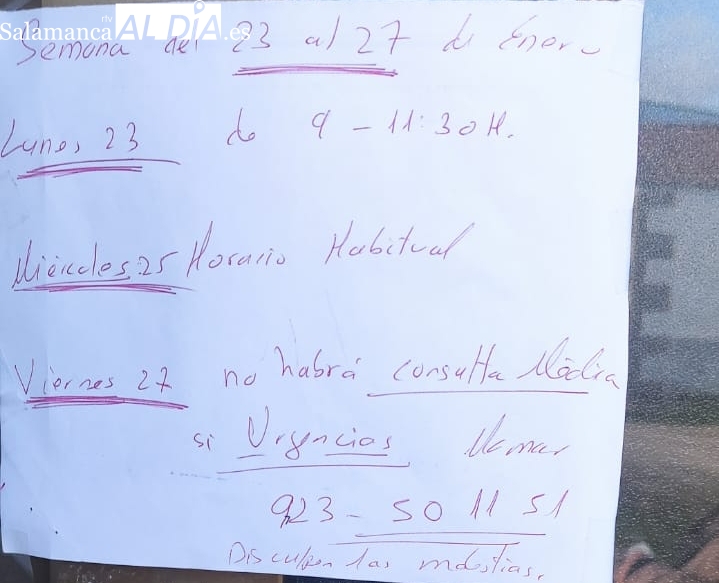 Salamanca rtv AL DÍA.es
Semana del 23 al 27 de Enero
Lunes 23 de 9 - 11:30 H.
Miércoles 25 Horario Habitual
Viernes 27 no habrá consulta Médica
si Urgencias llamar
923 - 50 11 51
Disculpen las molestias.